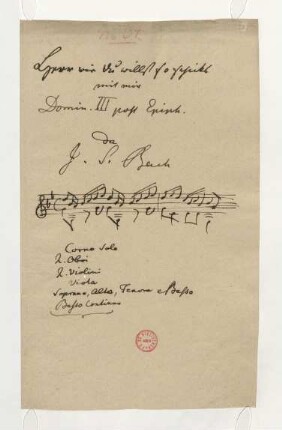 Herr wie du willst so schicks
mit mir
Domin. III post Epiph.
da
J. S. Bach
Corno Solo
2. Oboi
2. Violini
Viola
Soprano, Alto, Tenore e Basso
Basso Continuo